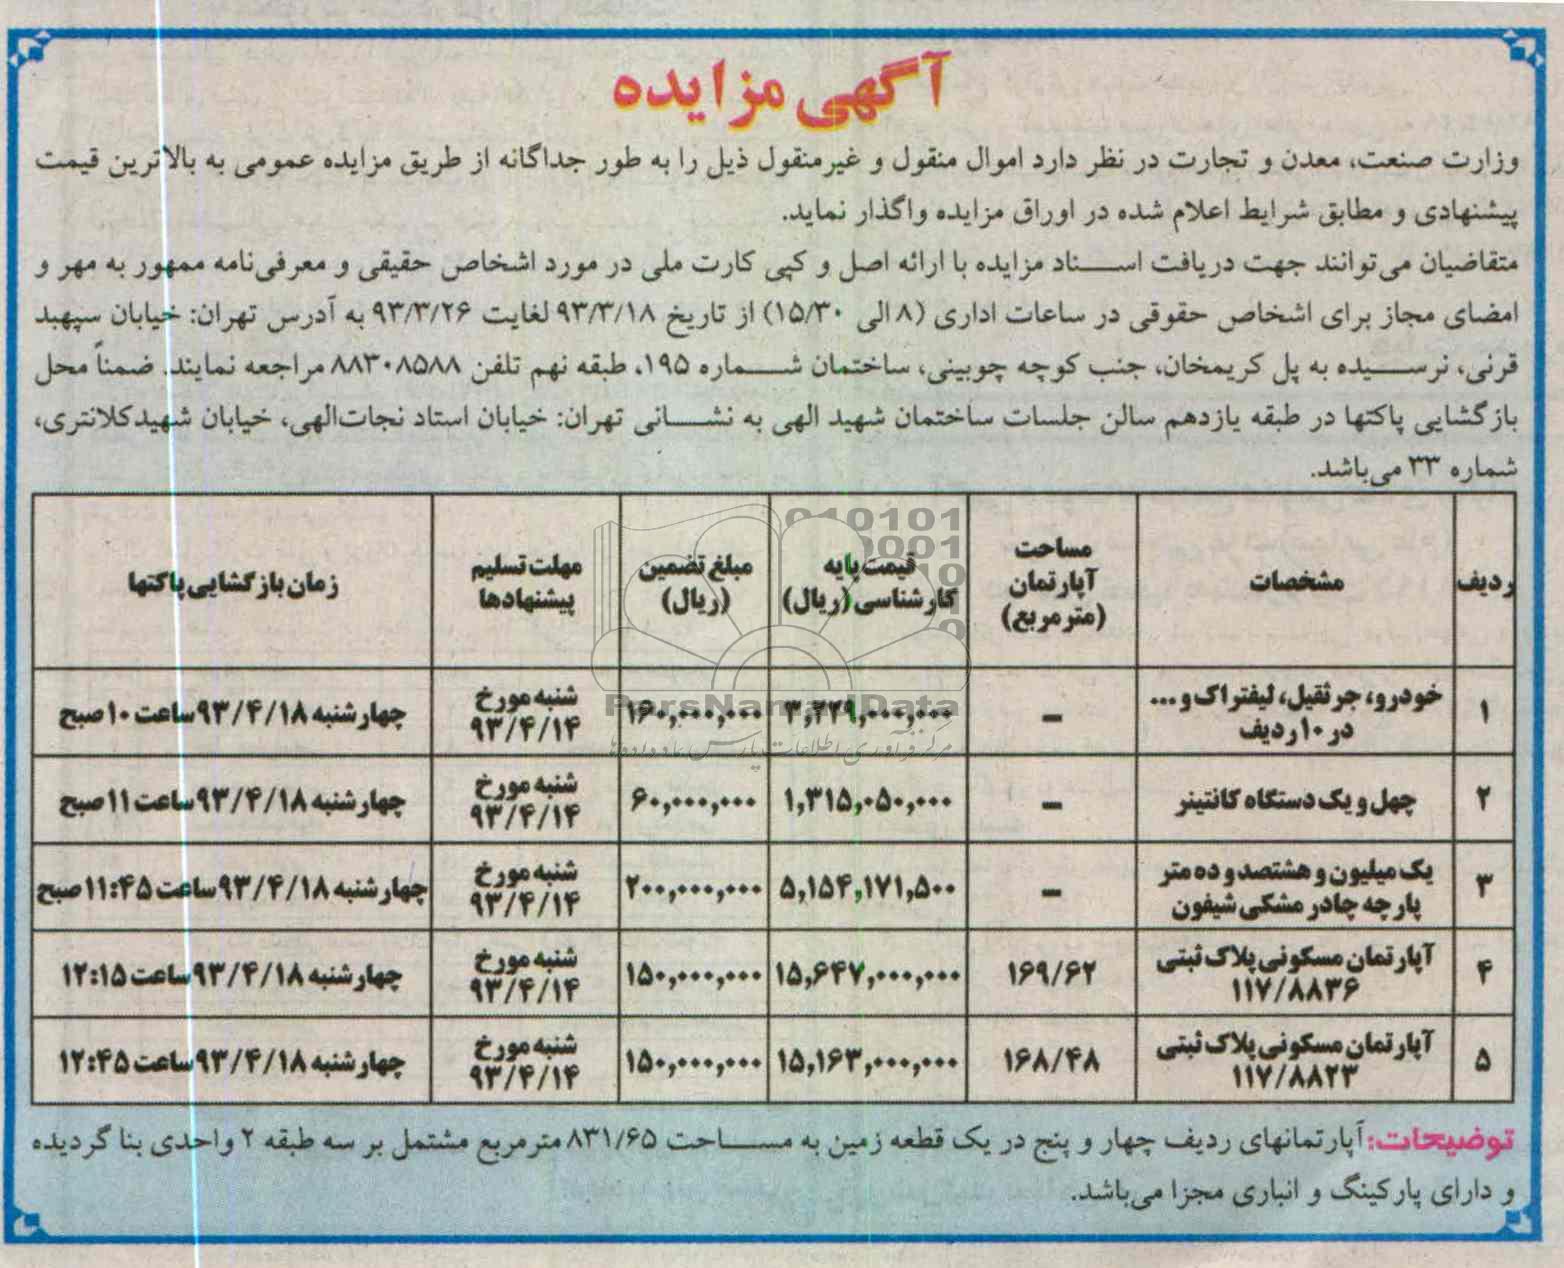 آگهی مزایده
وزارت صنعت، معدن و تجارت در نظر دارد اموال منقول و غیرمنقول ذیل را به طور جداگانه از طریق مزایده عمومی به بالاترین قیمت
پیشنهادی و مطابق شرایط اعلام شده در اوراق مزایده واگذار نماید.
متقاضیان می‌توانند جهت دریافت اسناد مزایده با ارائه اصل و کپی کارت ملی در مورد اشخاص حقیقی و معرفی‌نامه ممهور به مهر و
امضای مجاز برای اشخاص حقوقی در ساعات اداری (۸ الی ۱۵/۳۰) از تاریخ ۹۳/۳/۱۸ لغایت ۹۳/۳/۲۶ به آدرس تهران: خیابان سپهبد
قرنی، نرسیده به پل کریمخان، جنب کوچه چوبینی، ساختمان شماره ۱۹۵، طبقه نهم تلفن ۸۸۳۰۸۵۸۸ مراجعه نمایند. ضمناً محل
بازگشایی پاکتها در طبقه یازدهم سالن جلسات ساختمان شهید الهی به نشانی تهران: خیابان استاد نجات‌الهی، خیابان شهیدکلانتری،
شماره ۳۳ می‌باشد.
ردیف مشخصات مساحت آپارتمان (مترمربع) قیمت پایه کارشناسی (ریال) مبلغ تضمین (ریال) مهلت تسلیم پیشنهادها زمان بازگشایی پاکتها
۱ خودرو، جرثقیل، لیفتراک و... در ۱۰ ردیف – ۳,۲۲۹,۰۰۰,۰۰۰ ۱۶۰,۰۰۰,۰۰۰ شنبه مورخ ۹۳/۴/۱۴ چهارشنبه ۹۳/۴/۱۸ ساعت ۱۰ صبح
۲ چهل و یک دستگاه کانتینر – ۱,۳۱۵,۰۵۰,۰۰۰ ۶۰,۰۰۰,۰۰۰ شنبه مورخ ۹۳/۴/۱۴ چهارشنبه ۹۳/۴/۱۸ ساعت ۱۱ صبح
۳ یک میلیون و هشتصد و ده متر پارچه چادر مشکی شیفون – ۵,۱۵۴,۱۷۱,۵۰۰ ۲۰۰,۰۰۰,۰۰۰ شنبه مورخ ۹۳/۴/۱۴ چهارشنبه ۹۳/۴/۱۸ ساعت ۱۱:۴۵ صبح
۴ آپارتمان مسکونی پلاک ثبتی ۱۱۷/۸۸۳۶ ۱۶۹/۶۲ ۱۵,۶۴۷,۰۰۰,۰۰۰ ۱۵۰,۰۰۰,۰۰۰ شنبه مورخ ۹۳/۴/۱۴ چهارشنبه ۹۳/۴/۱۸ ساعت ۱۲:۱۵
۵ آپارتمان مسکونی پلاک ثبتی ۱۱۷/۸۸۲۳ ۱۶۸/۴۸ ۱۵,۱۶۳,۰۰۰,۰۰۰ ۱۵۰,۰۰۰,۰۰۰ شنبه مورخ ۹۳/۴/۱۴ چهارشنبه ۹۳/۴/۱۸ ساعت ۱۲:۴۵
توضیحات: آپارتمانهای ردیف چهار و پنج در یک قطعه زمین به مساحت ۸۳۱/۶۵ مترمربع مشتمل بر سه طبقه ۲ واحدی بنا گردیده
و دارای پارکینگ و انباری مجزا می‌باشد.
ParsNamadData
مرکز فرآوری اطلاعات پارس نماد داده‌ها